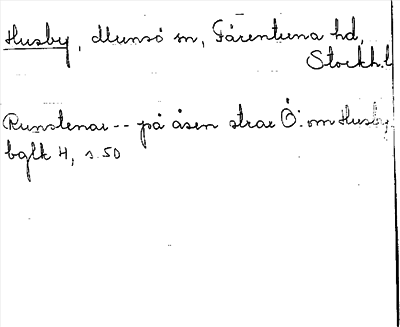 Husby, Munsö sn, Färentuna hd,
Stockh. l
Runstenar -- på åsen strax Ö. om Husby
bglk 4, s. 50